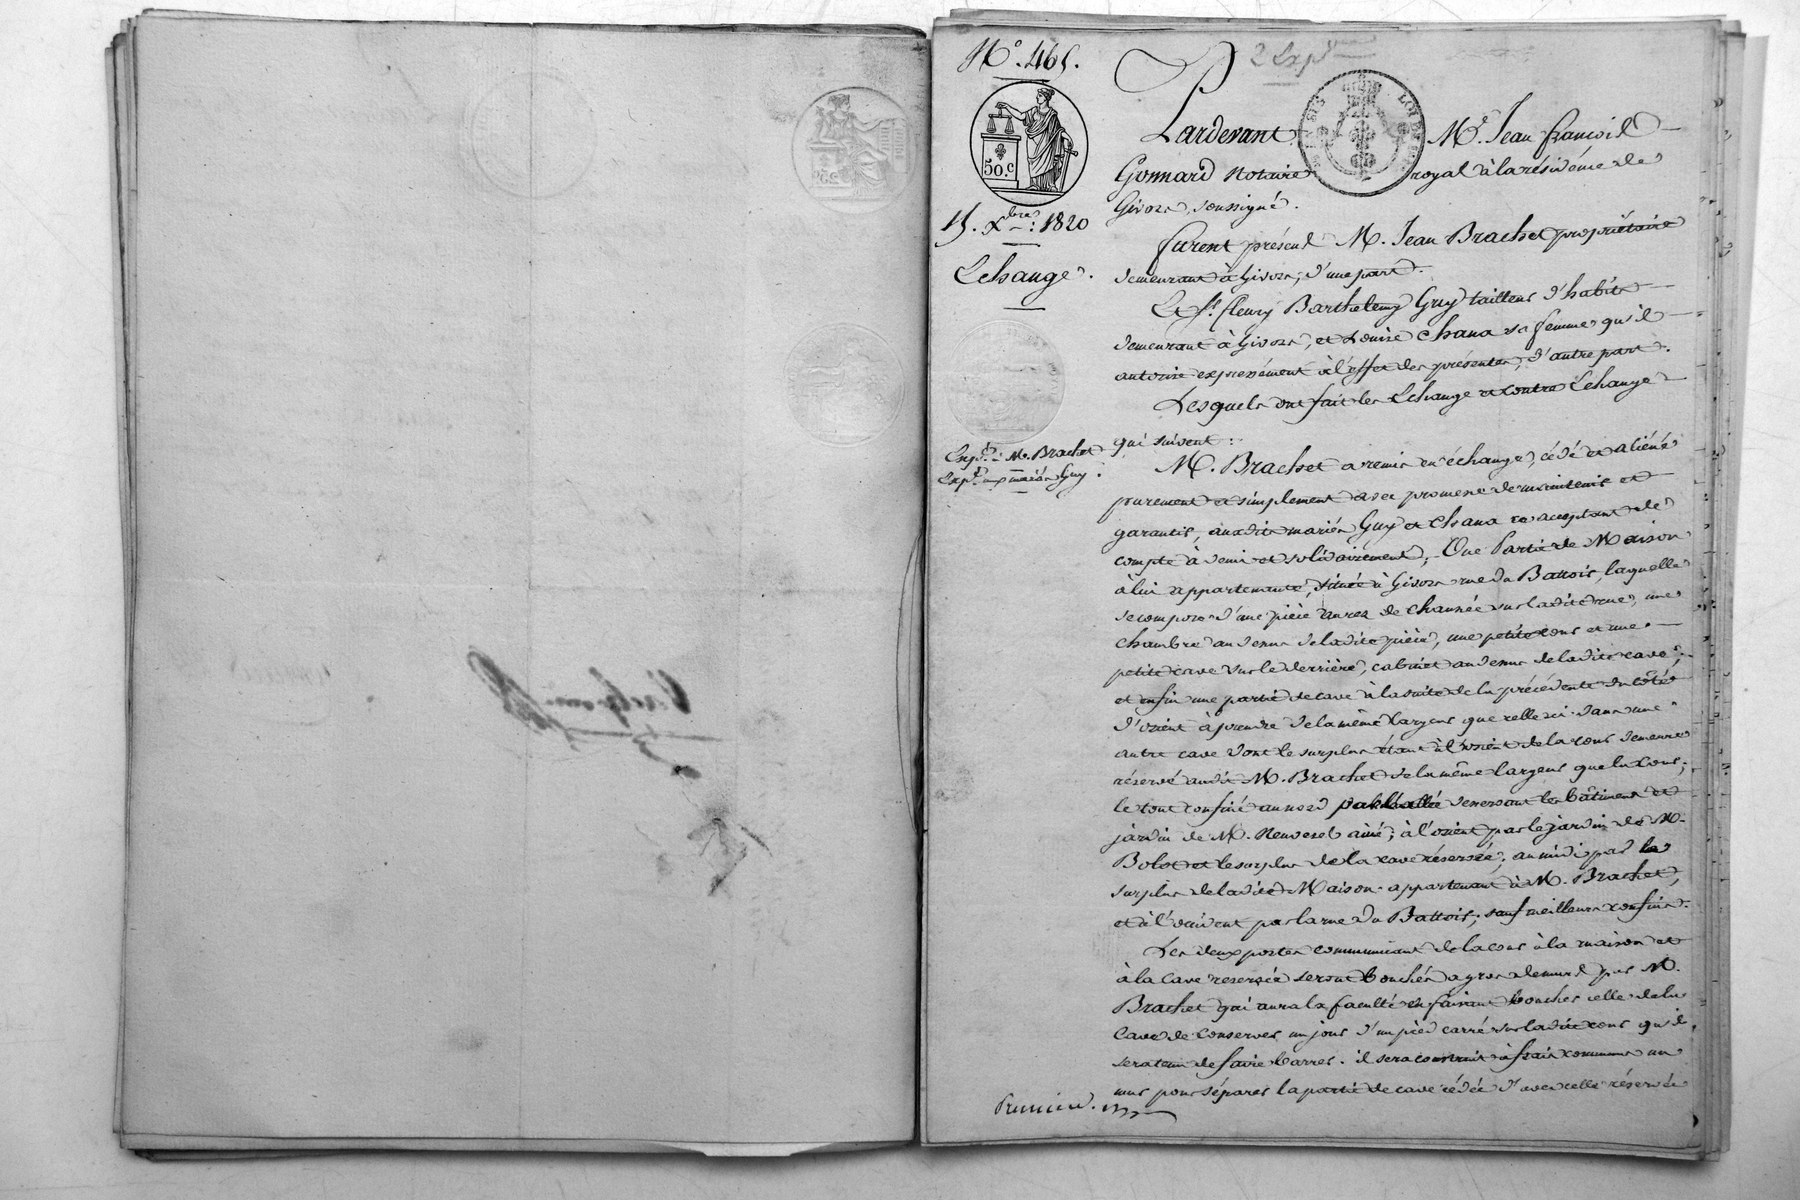 N.° 465.
2 Exp.
50.c
15. Xbre: 1820
Echange.
Expon. M. Brachet
Exp. aux mariés Guy.
Pardevant Me. Jean françois
Gonnard Notaire royal à la résidence de
Givors, soussigné.
furent présens M. Jean Brachet propriétaire
demeurant à Givors, d'une part.
Et Sr. fleury Barthelemy Guy tailleur d'habits
demeurant à Givors, et Louise Chana sa femme qu'il
autorise expressément à l'effet des présentes, d'autre part.
Lesquels ont fait les Echange et contre Echange
qui suivent:
M. Brachet a remis en échange, cédé et aliéné
purement et simplement avec promesse de maintenir et
garantir, auxdits mariés Guy et Chana ce acceptant de
compte à demi et solidairement, Une Partie de Maison
à lui appartenante, située à Givors rue du Battoir, laquelle
se compose d'une pièce au rez de chaussée sur ladite rue, une
chambre au dessus de ladite pièce, une petite cour et une
petite cave sur le derrière, cabinet au dessus de ladite cave,
et enfin une partie de cave à la suite de la précédente du côté
d'orient à prendre de la même largeur que celle ci dans une
autre cave dont le surplus étant à l'orient de la cour demeure
réservé audit M. Brachet de la même largeur que la cour,
le tout confiné au nord par l'allée desservant les bâtimens et
jardin de M. Neuvesel ainé, à l'orient par le jardin de M.
Bolot et le surplus de la cave réservée, au midi par le
surplus de ladite Maison appartenant à M. Brachet,
et à l'occident par la rue du Battoir, sauf meilleurs confins.
Les deux portes communicant de la cour à la maison et
à la cave reservée seront bouchés à gros de mur par M.
Brachet qui aura la faculté en faisant boucher celle de la
Cave de Conserver un jour d'un pied carré sur ladite cour qu'il
sera tenu de faire barrer. il sera construit à frais communs un
mur pour séparer la partie de cave cédée d'avec celle réservée
Premier.